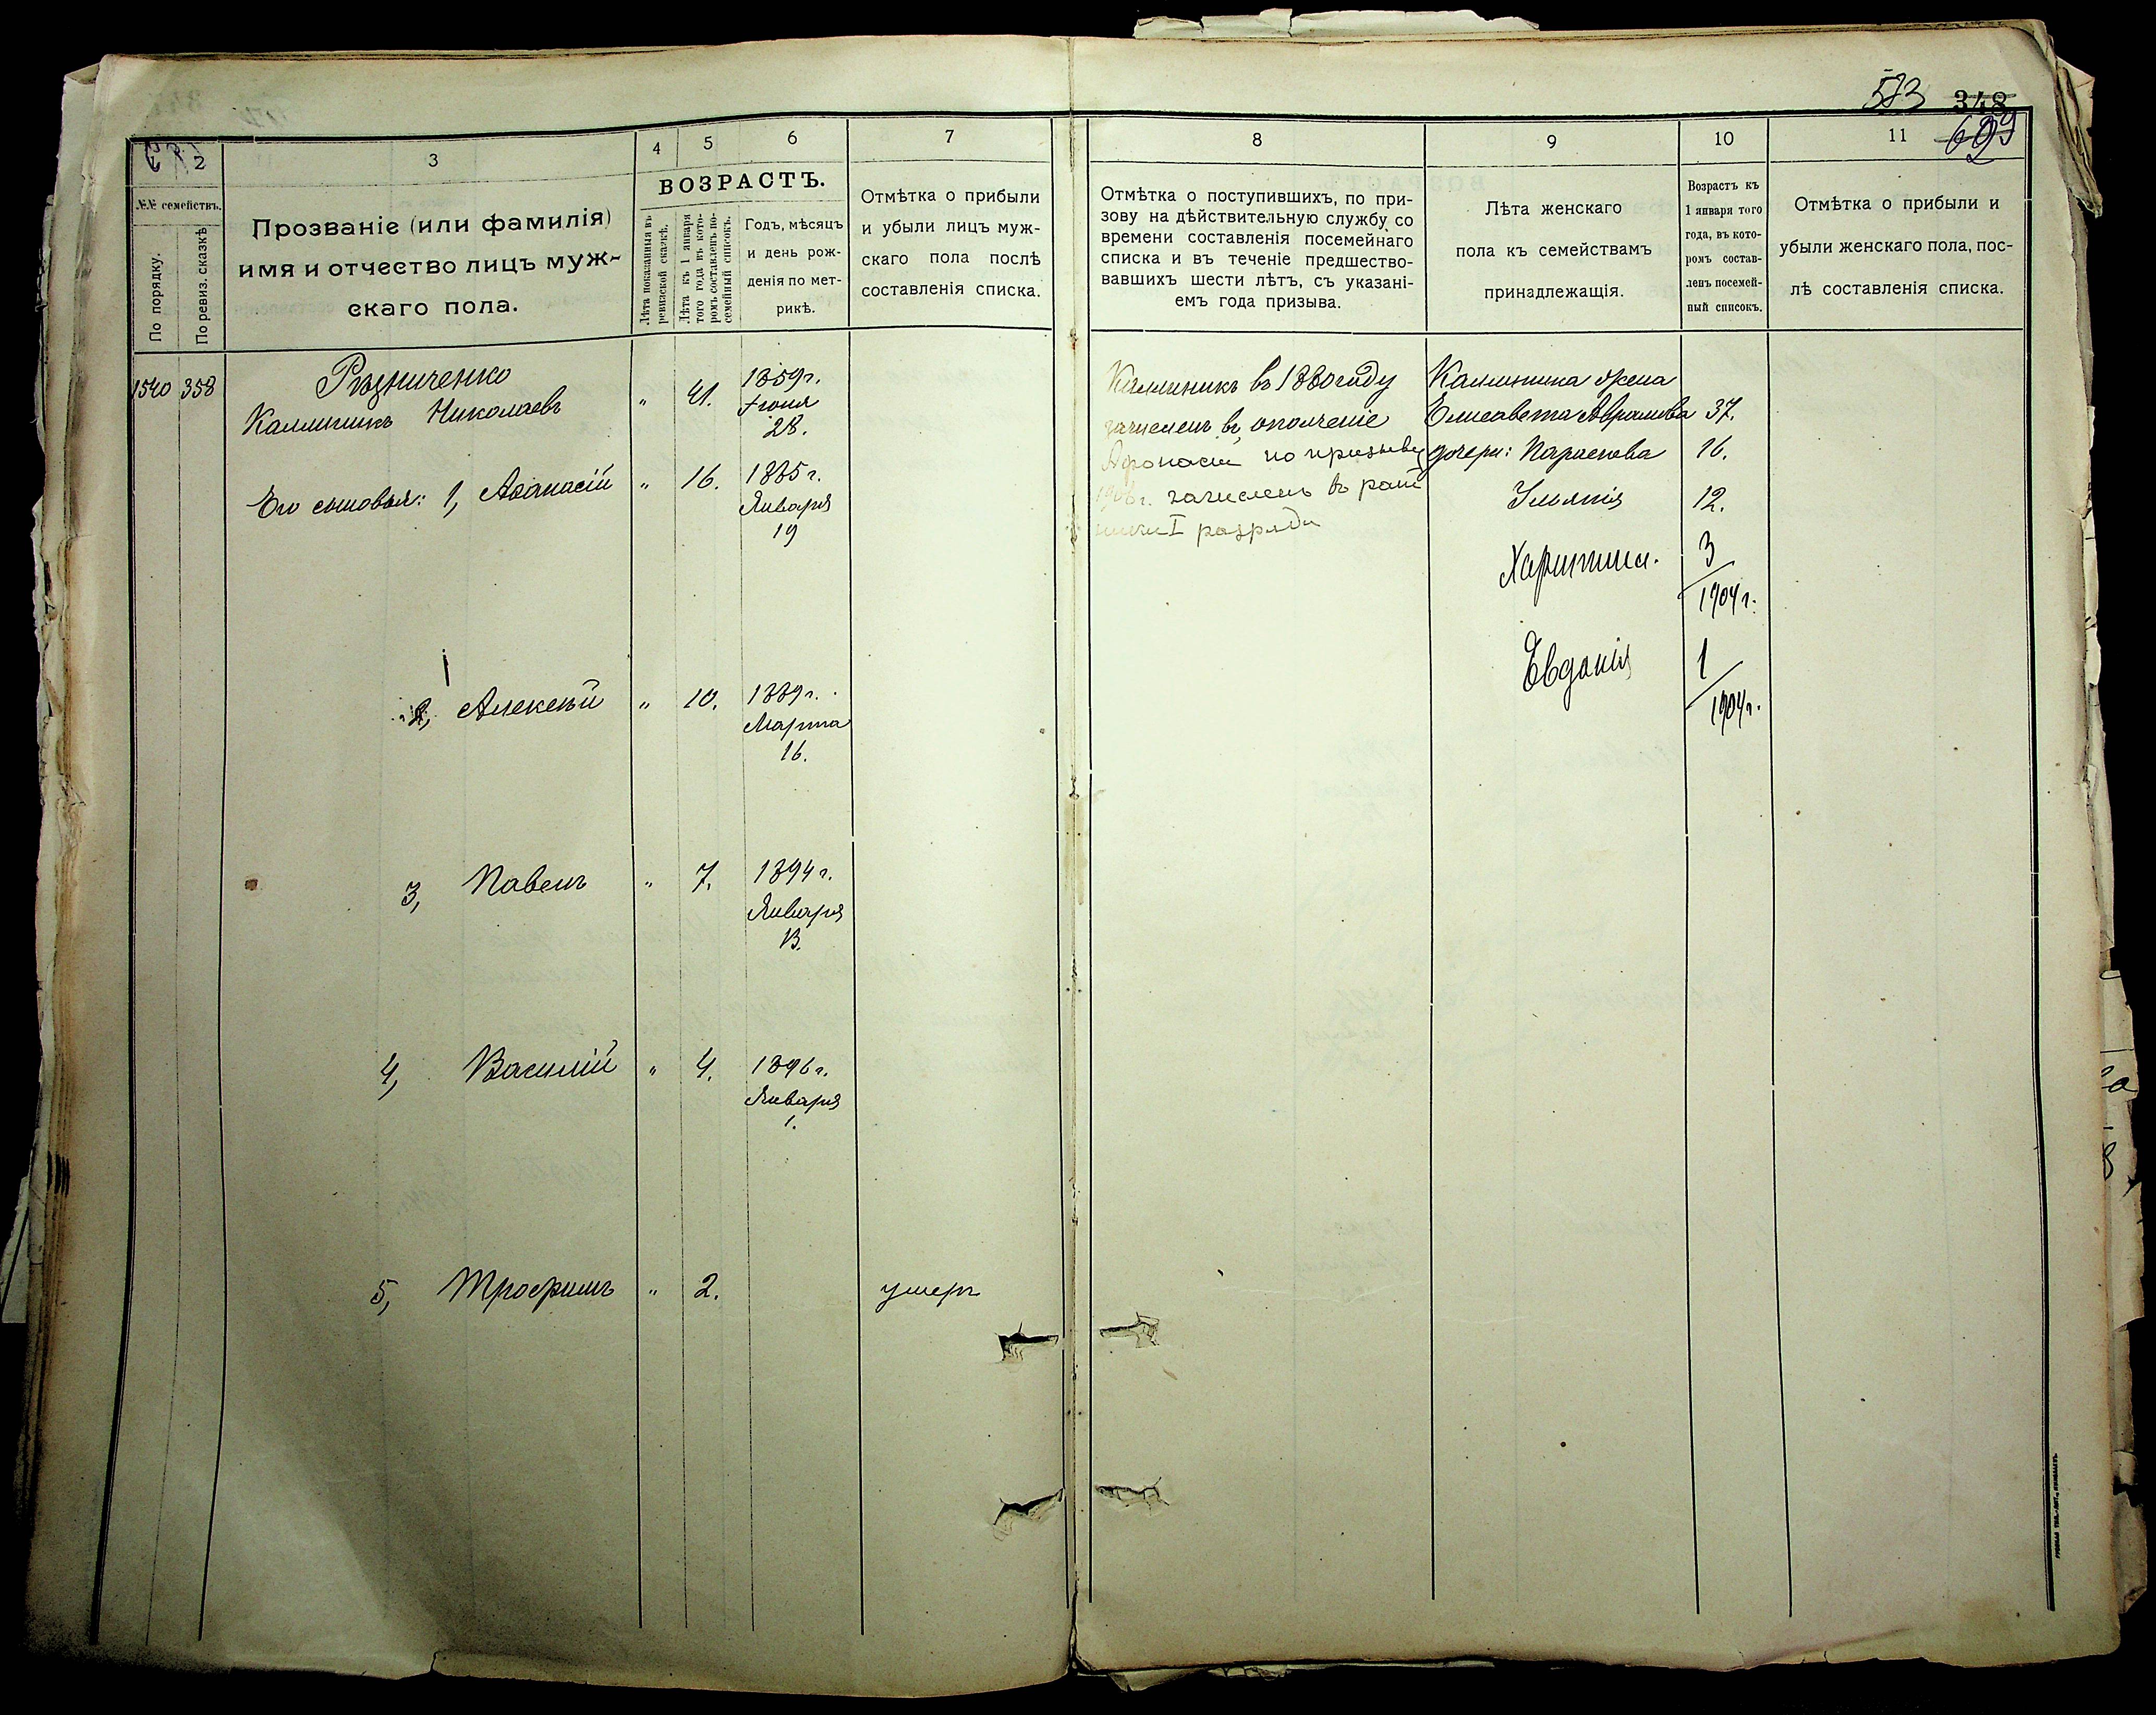 573 348
629
2 3 4 5 6 7
№№ семействъ.
По порядку.
По ревиз. сказкѣ
Прозваніе (или фамилія)
имя и отчество лицъ муж-
скаго пола.
ВОЗРАСТЪ.
Лѣта показанныя въ
ревизской сказкѣ.
Лѣта къ 1 января
того года въ кото-
ромъ составленъ по-
семейный списокъ.
Годъ, мѣсяцъ
и день рож-
денія по мет-
рикѣ.
Отмѣтка о прибыли
и убыли лицъ муж-
скаго пола послѣ
составленія списка.
1540 358 Рѣзниченко
Каллиникъ Николаевъ " 41. 1859г.
Іюня
28.
Его сыновья: 1, Аѳанасій " 16. 1885г.
Января
19
2, Алексѣй " 10. 1889г.
Марта
16.
3, Павелъ " 7. 1894г.
Января
13.
4, Василій " 4. 1896г.
Января
1.
5, Трофимъ " 2. умеръ
8 9 10 11
Отмѣтка о поступившихъ, по при-
зову на дѣйствительную службу со
времени составленія посемейнаго
списка и въ теченіе предшество-
вавшихъ шести лѣтъ, съ указані-
емъ года призыва.
Лѣта женскаго
пола къ семействамъ
принадлежащія.
Возрастъ къ
1 января того
года, въ кото-
ромъ состав-
ленъ посемей-
ный списокъ.
Отмѣтка о прибыли и
убыли женскаго пола, пос-
лѣ составленія списка.
Каллиникъ въ 1880 году
зачисленъ въ ополченіе
Афонасій по призыву
1906г. зачисленъ въ рат
ники I разряда
Каллиника жена
Елисавета Аврамова 37.
дочери: Параскева 16.
Ульянія 12.
Харитина. 3
1904г.
Евдокія 1
1904г.